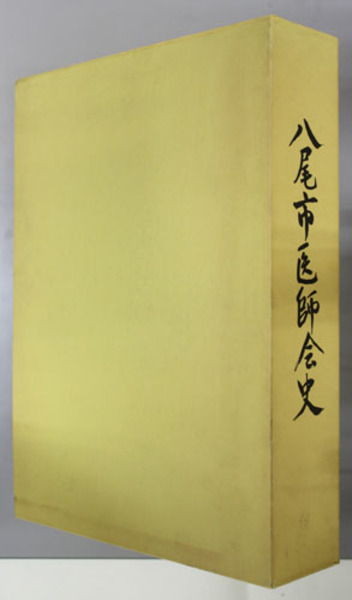 八尾市医師会史